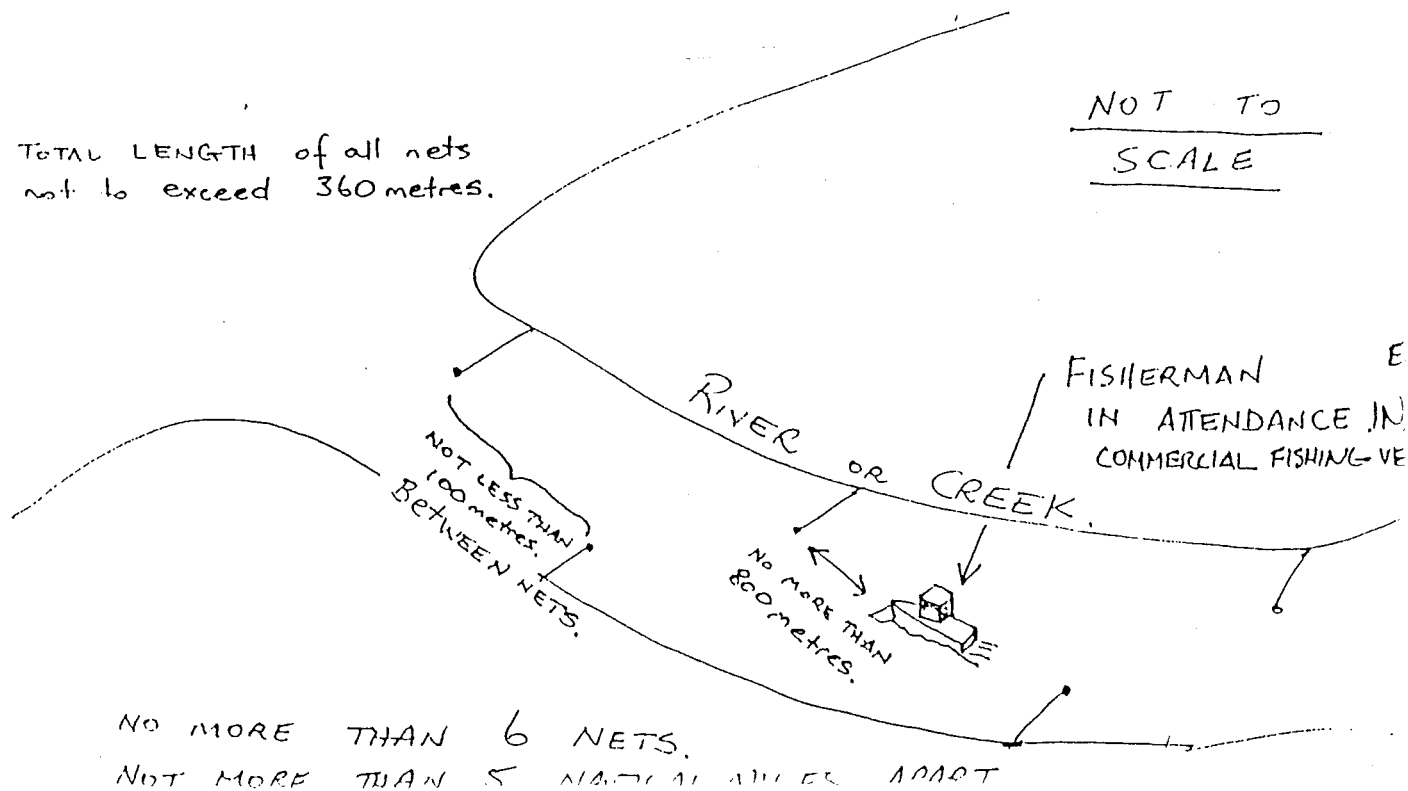 NOT TO
SCALE
TOTAL LENGTH of all nets
not to exceed 360 metres.
RIVER OR CREEK.
FISHERMAN
IN ATTENDANCE IN
COMMERCIAL FISHING VE
NOT LESS THAN
100 metres.
BETWEEN NETS.
NO MORE THAN
800 metres.
NO MORE THAN 6 NETS.
NOT MORE THAN 5 NAUTICAL MILES APART